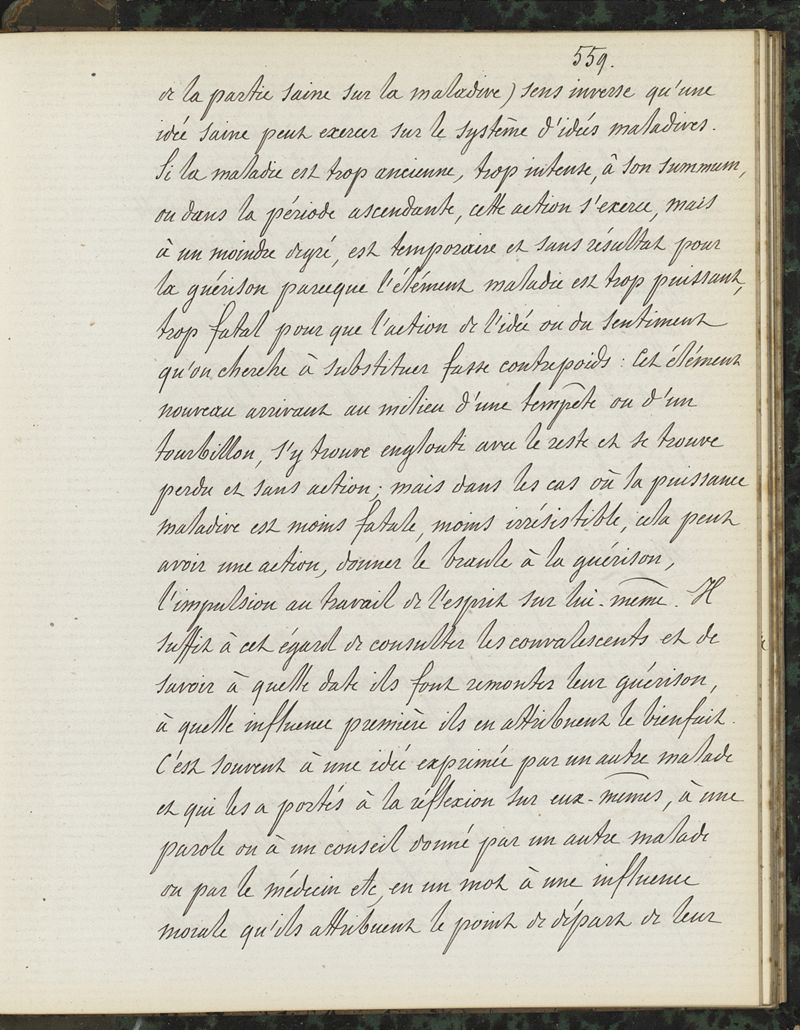 559.
de la partie saine sur la maladive) sens inverse qu'une
idée saine peut exercer sur le système d'idées maladives.
Si la maladie est trop ancienne, trop intense, à son summum,
ou dans la période ascendante, cette action s'exerce, mais
à un moindre degré, est temporaire et sans résultat pour
la guérison parceque l'élément maladie est trop puissant,
trop fatal pour que l'action de l'idée ou du sentiment
qu'on cherche à substituer fasse contrepoids : Cet élément
nouveau arrivant au milieu d'une tempête ou d'un
tourbillon, s'y trouve englouti avec le reste et se trouve
perdu et sans action ; mais dans les cas où la puissance
maladive est moins fatale, moins irrésistible, cela peut
avoir une action, donner le branle à la guérison,
l'impulsion au travail de l'esprit sur lui-même. Il
suffit à cet égard de consulter les convalescents et de
savoir à quelle date ils font remonter leur guérison,
à quelle influence première ils en attribuent le bienfait.
C'est souvent à une idée exprimée par un autre malade
et qui les a portés à la réflexion sur eux-mêmes, à une
parole ou à un conseil donné par un autre malade
ou par le médecin etc, en un mot à une influence
morale qu'ils attribuent le point de départ de leur